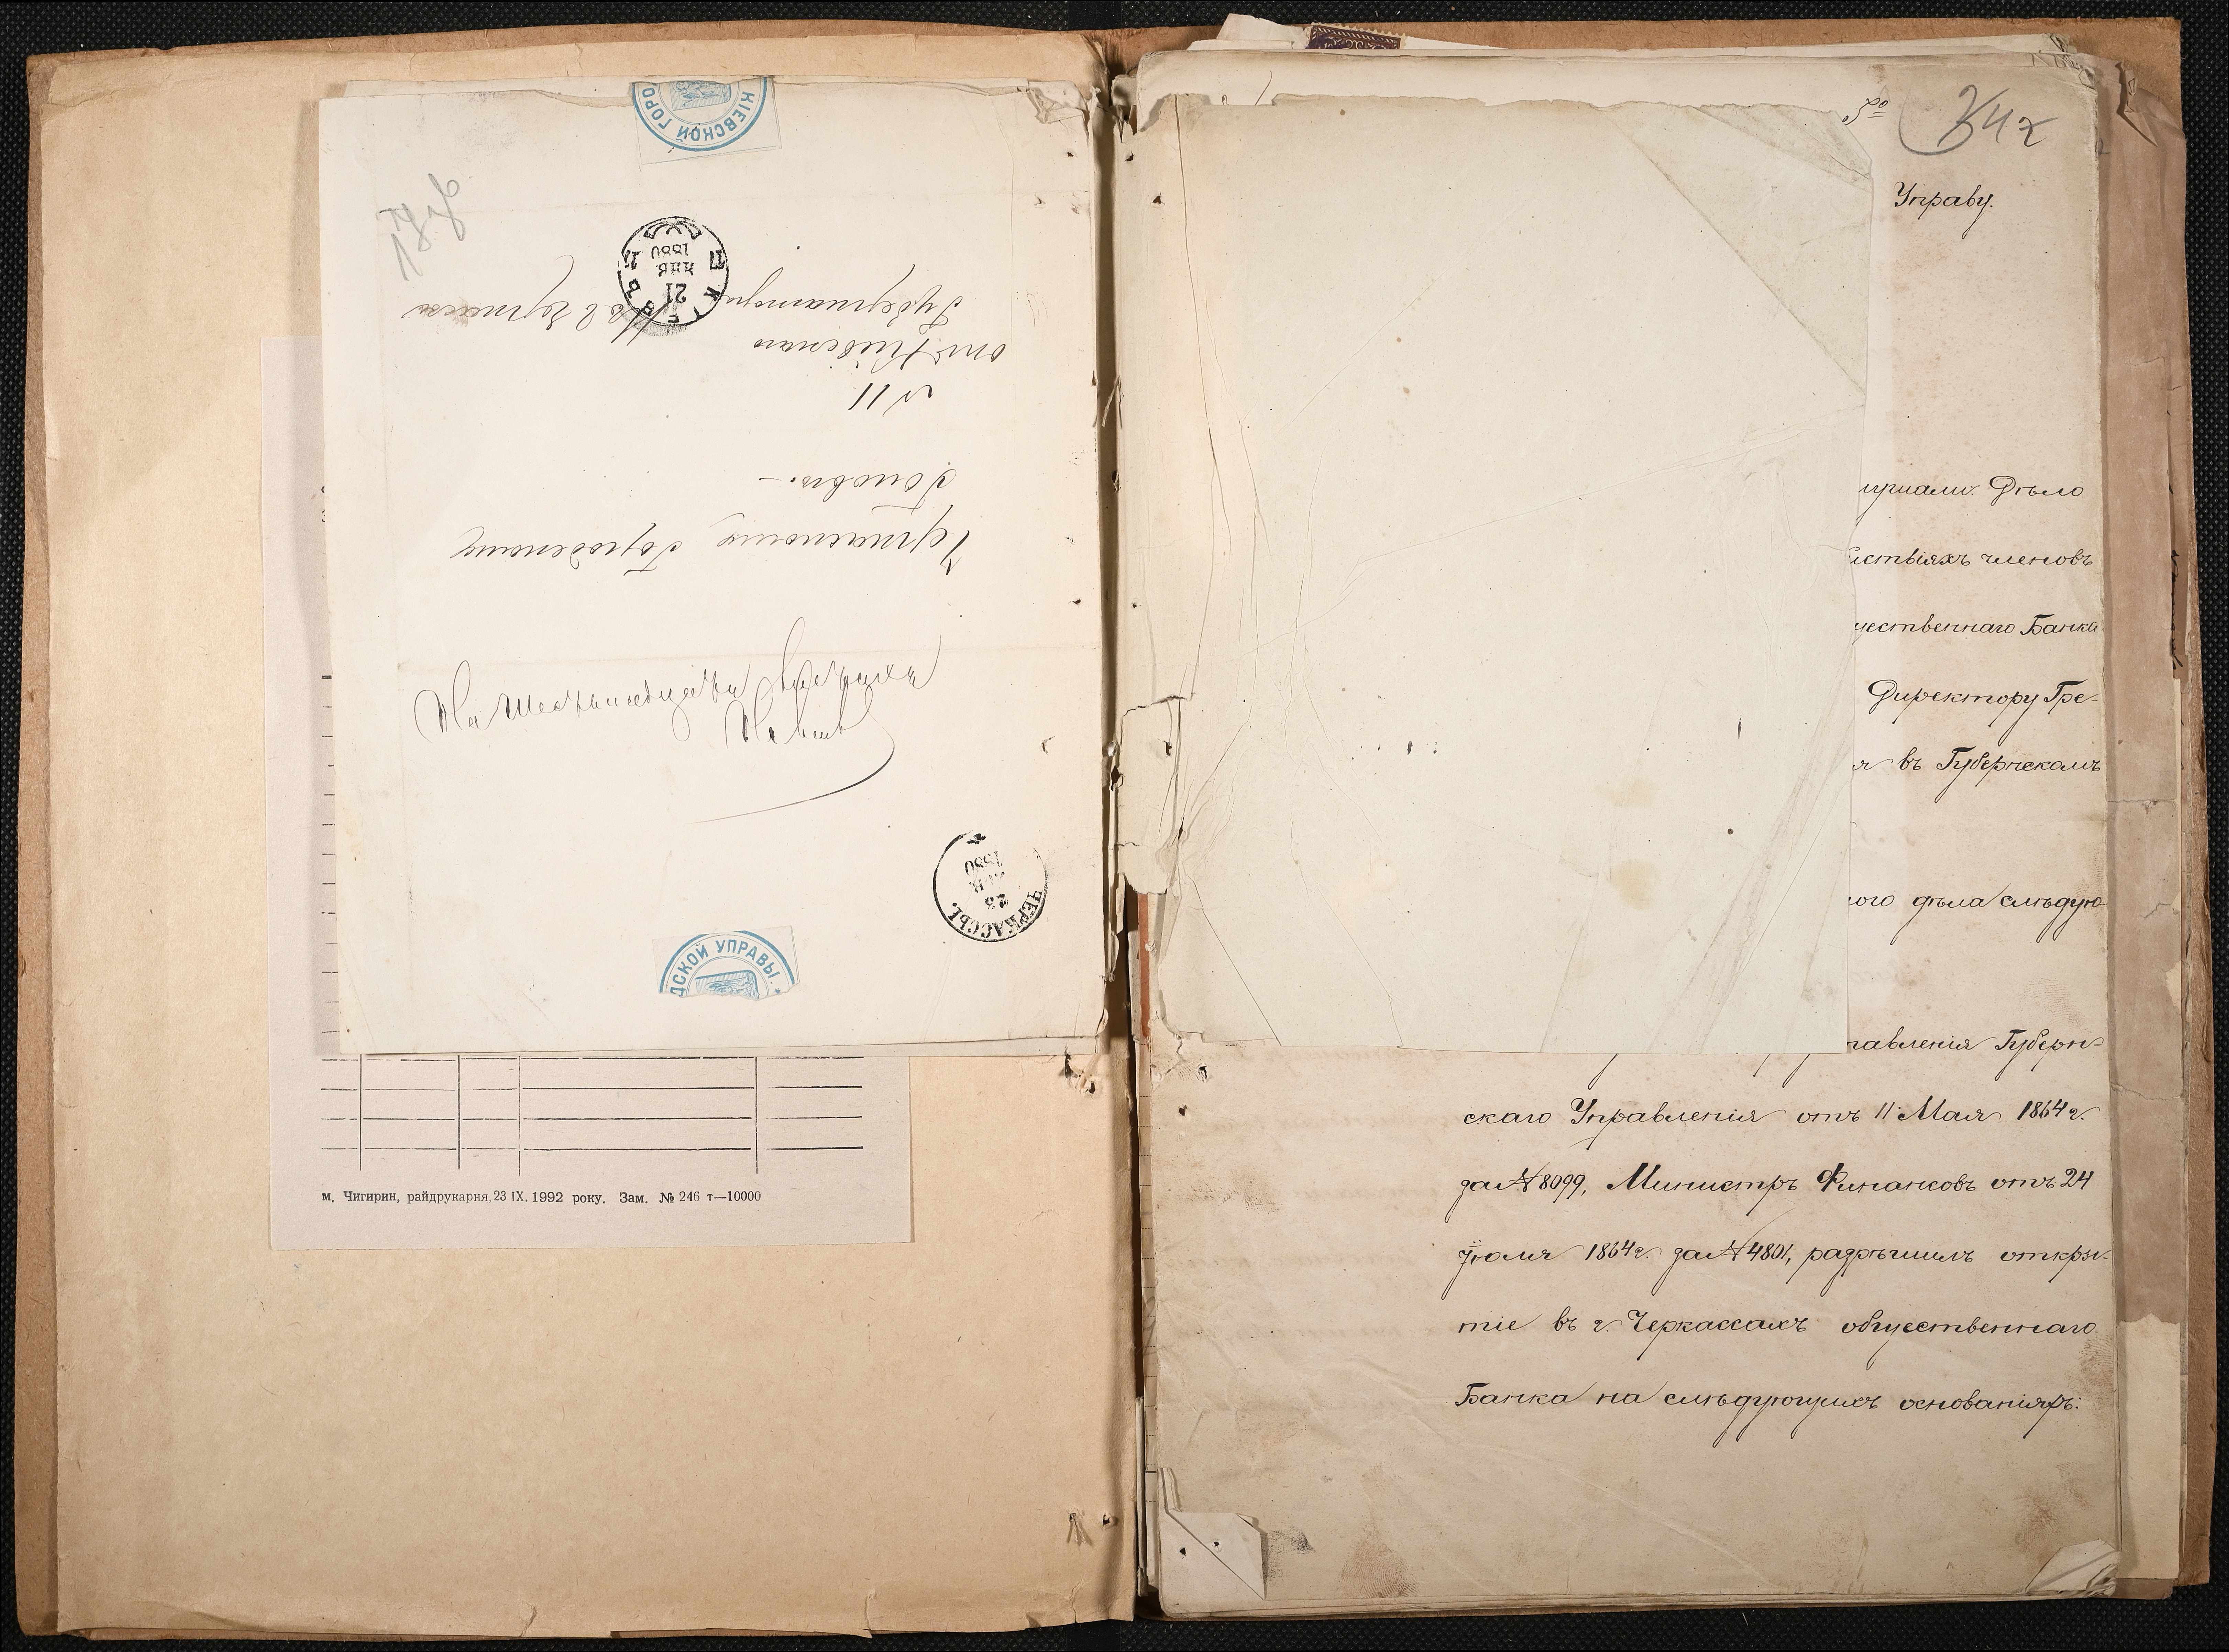 КІЕВСКОЙ ГОРО
КІЕВЪ
21
ЯНВ.
1880
Губернатора
въ г Черкассы
отъ Кіевскаго
№ 11
Головѣ.
Черкасскому Городскому
ЧЕРКАССЫ.
23
ЯНВ
1880
ДСКОЙ УПРАВЫ.
м. Чигирин, райдрукарня, 23 IX. 1992 року. Зам. № 246 т—10000
Управу.
Дѣло
ствіяхъ членовъ
щественнаго Банка
Директору Гре-
я въ Губернскомъ
ого дѣла слѣдую
равленія Губерн-
скаго Управленія отъ 11 Мая 1864 г.
за № 8099, Министръ Финансовъ отъ 24
Іюля 1864 г. за № 4801, разрѣшилъ откры-
тіе въ г. Черкассахъ общественнаго
Банка на слѣдующихъ основаніяхъ: